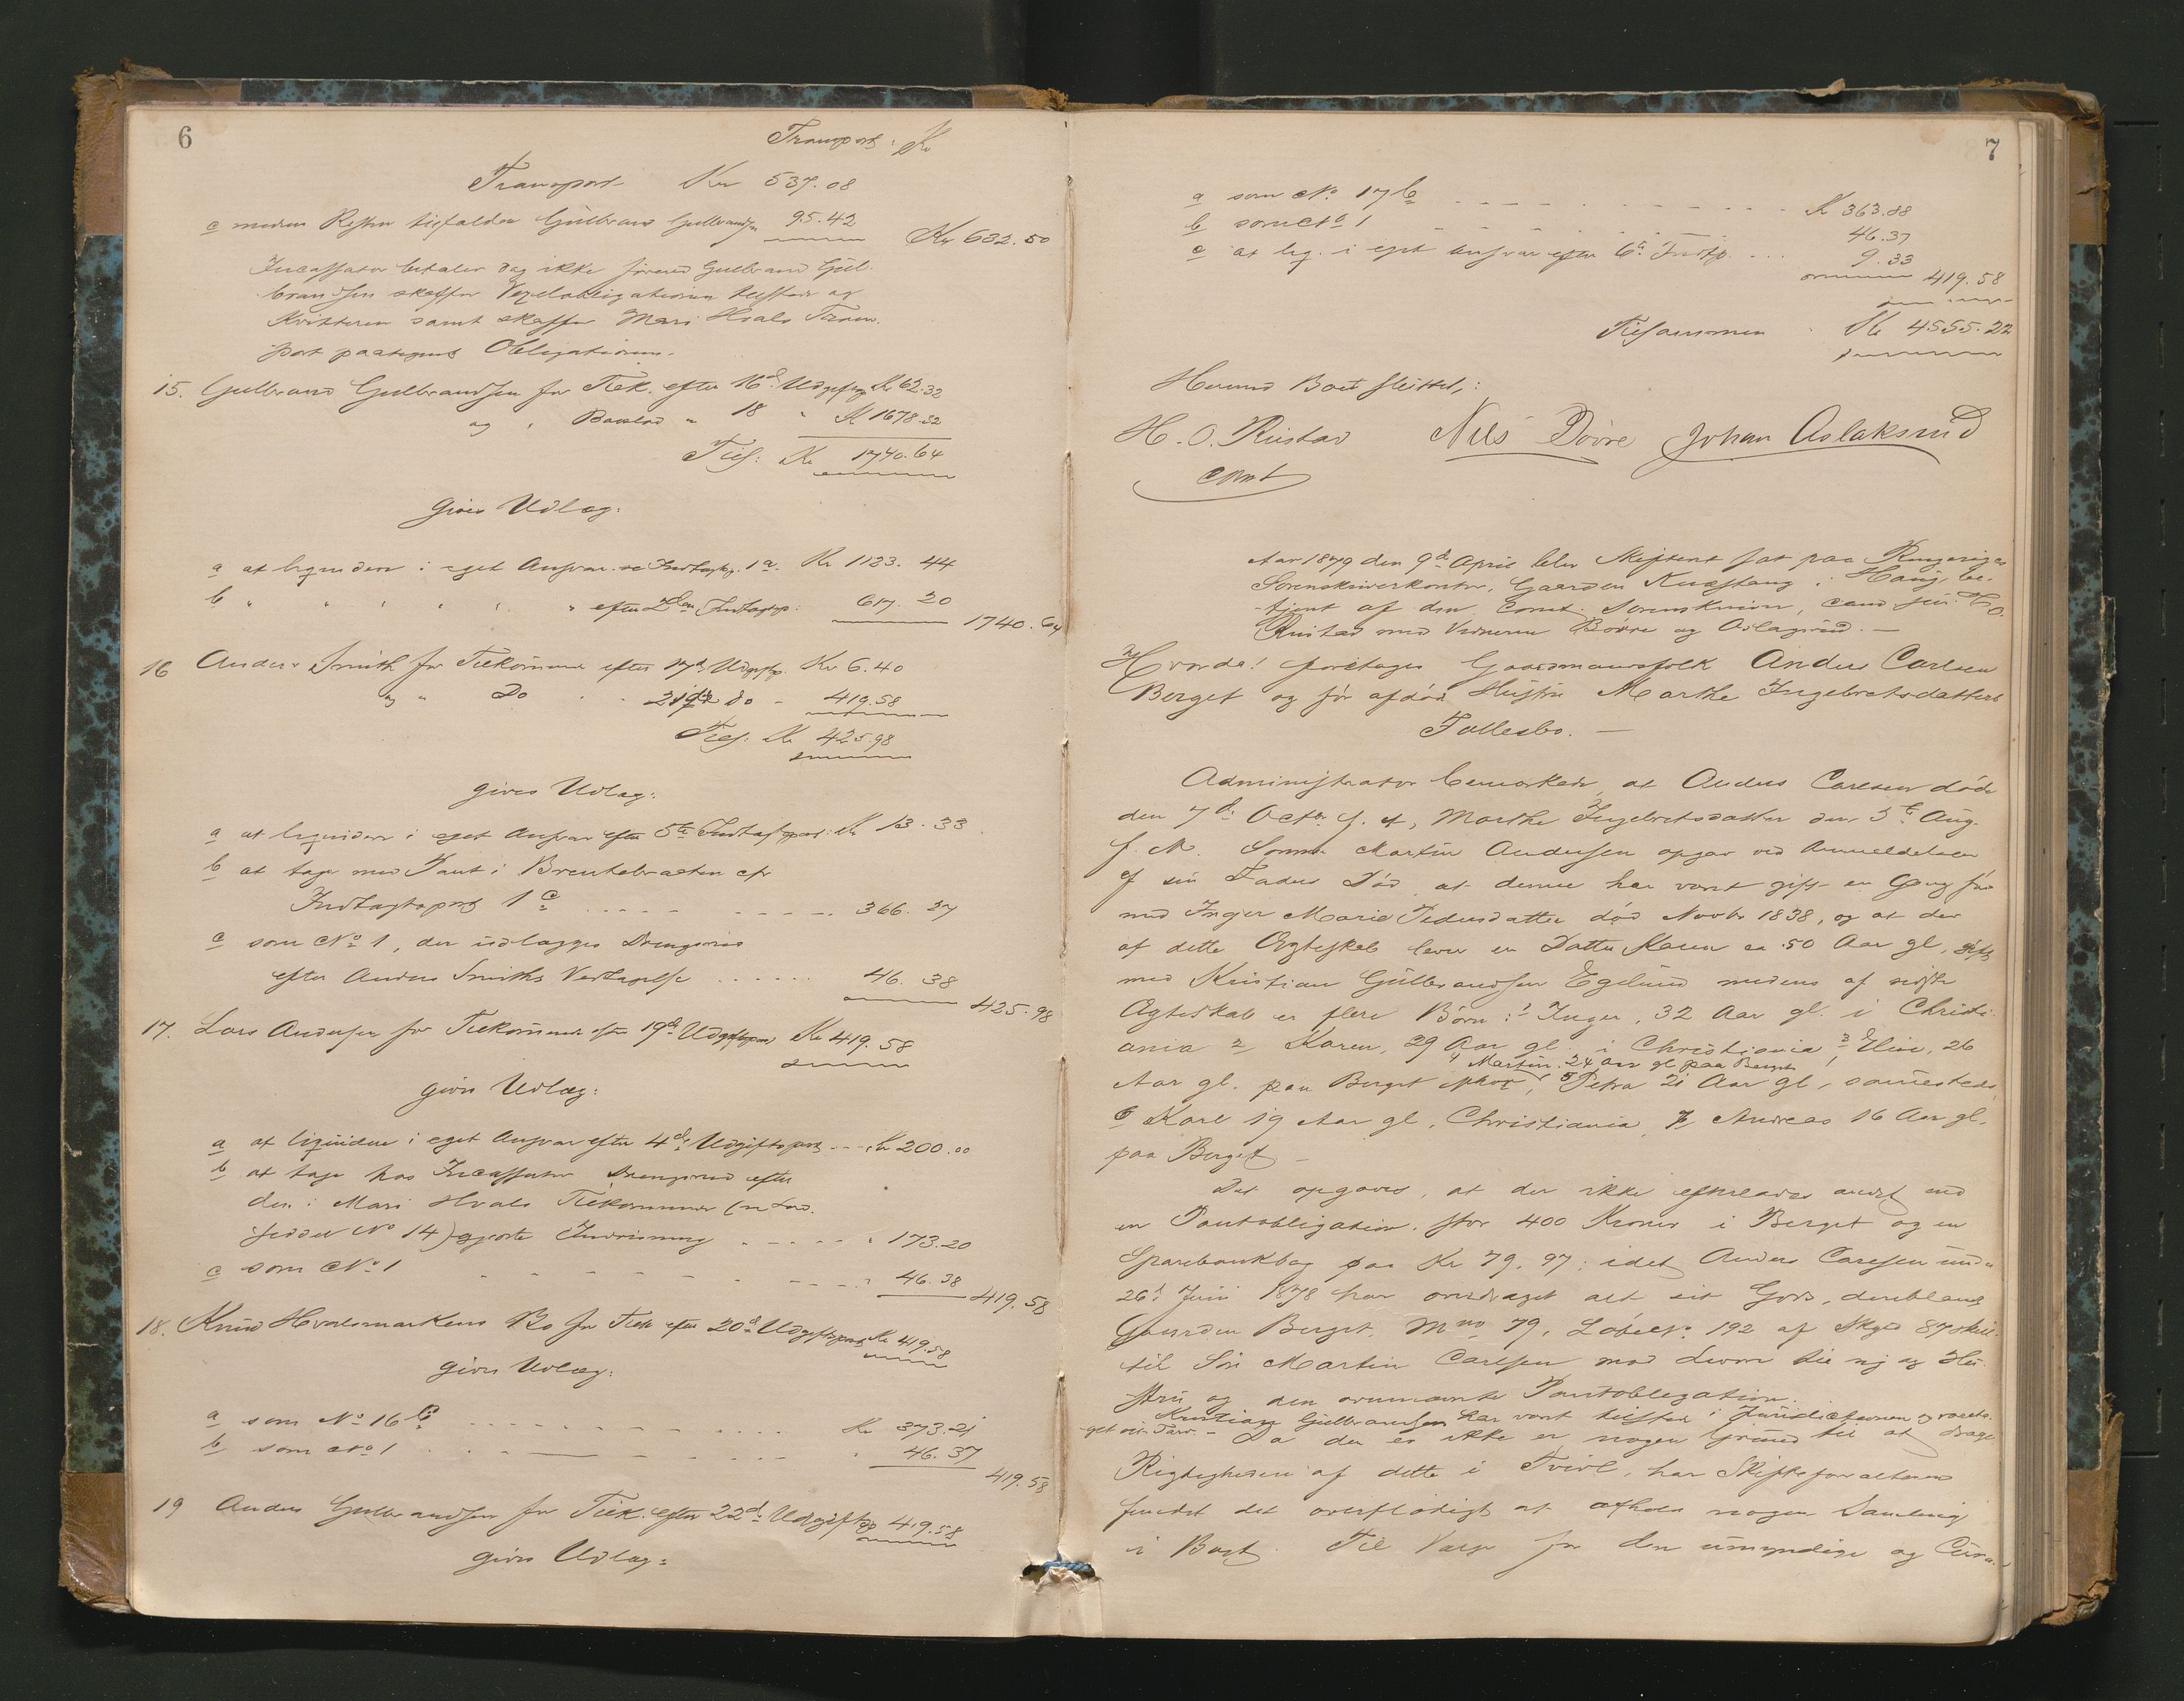 6
Transport: Kr
Transport Kr 537.08
c medens Resten tilfalder Gulbrand Gulbrandsen 95.42 Kr 632.50
Incassator betaler dog ikke førend Gulbrand Gul-
brandsen skaffer Vexelobligationen tilstede og
Kvitteren samt skaffer Mari Hvals Trans-
port paategnet Obligationen.
15. Gulbrand Gulbrandsen for Tilk. efter 16d Udgiftsp Kr 62.32
og " Boeslod " 18 " Kr 1678.32
Tils: Kr 1740.64
gives Udlæg:
a at liqvidere i eget Ansvar Indtægtsp. 1 a. Kr 1123.44
b " " " " " " efter 2den Indtægtsp: 617.20 1740.64
16 Anders Smith for Tilkommende efter 17d Udgiftsp. Kr 6.40
og " Do 21de do - 419.58
Tils: Kr 425.98
gives Udlæg:
a at liqvidere i eget Ansvar efter 5te Indtægtspost: Kr 13.33
b at tage med Pant i Brentebraaten efr
Indtægtspost 1 c 366.27
c som No 1, der udlægges Drengsrud
efter Anders Smiths Vedtagelse 46.38 425.98
17. Lars Andersen for Tilkommende efter 19d Udgiftspost Kr 419.58
gives Udlæg:
a at liqvidere i eget Ansvar efter 4d Udgiftspost - - Kr 200.00
b at tage hos Incassator Drengsrud efter
den i Mari Hvals Tilkommende
No 14) gjorte Indvisning " 173.20
c som No 1 46.38 419.58
18. Knud Hvalsmarkens Bo for Tilk efter 20d Udgiftspost Kr 419.58
gives Udlæg:
a som No 16 b Kr 373.21
b som No 1 46.37 419.58
19 Anders Gulbrandsen for Tilk. efter 22d Udgiftsp 419.58
gives Udlæg:
7
a som No 17 b K 363.88
b som No 1 46.37
c at liq. i eget Ansvar efter 6te Indtp. 9.33 419.58
Tilsammen Kr 4555.22
Hermed Boet sluttet,:
H. O. Rustad Nils Dövre Johan Aslaksrud
const
Aar 1879 den 9d April blev Skifteret sat paa Ringeriges
Sorenskriverkontor, Gaarden Kvæstang i Houg, be-
tjent af den const. Sorenskriver, cand jur. H. O.
Rustad med Vidnerne Dövre og Aslagsrud. —
Hvorda! foretoges Gaardmandsfolk Anders Carlsen
Berget og før afdøde Hustru Marthe Ingebretsdatters
Fællesbo. —
Administrator bemærkede, at Anders Carlsen døde
den 7d Octr. f. A, Marthe Ingebretsdatter den 3te Aug.
f. A. Sønnen Martin Andersen opgav ved Anmeldelsen
af sin Faders Død at denne har været gift en Gang før
med Inger Marie Pedersdatter død Novbr 1838, og at der
af dette Ægteskab lever en Datter Karen ca 50 Aar gl, gift
med Kristian Gulbrandsen Egelund medens af sidste
Ægteskab er flere Børn: 1 Inger, 32 Aar gl. i Christi-
ania 2 Karen, 29 Aar gl i Christiania, 3 Eline, 26
4 Martin. 24 Aar gl paa Berget
Aar gl. paa Berget, 5 Petra 21 Aar gl, samesteds,
6 Karl 19 Aar gl, Christiania, 7 Andreas 16 Aar gl.
paa Berget —
Det opgaves, at der ikke efterlades andet end
en Pantobligation, stor 400 Kroner i Berget og en
Sparebankbog paa Kr 79.97; idet Anders Carlsen under
26d Juni 1878 har overdraget alt sit Gods, deriblandt
Gaarden Berget, Mno 79, Løbeno. 192 af Skyld 87 skill.
til Søn Martin Carlsen mod Livøre til sig og Hu-
stru og den ovennævnte Pantobligation.
Kristian Gulbrandsen har været tilstede i Juridictionen og vareta-
get sit Tarv. — Da der er ikke er nogen Grund til at drage
Rigtigheden af dette i Tvivl, har Skifteforvalteren
fundet det overflødigt at afholde nogen Samling
i Boet. Til Værge for den umyndige og Cura-